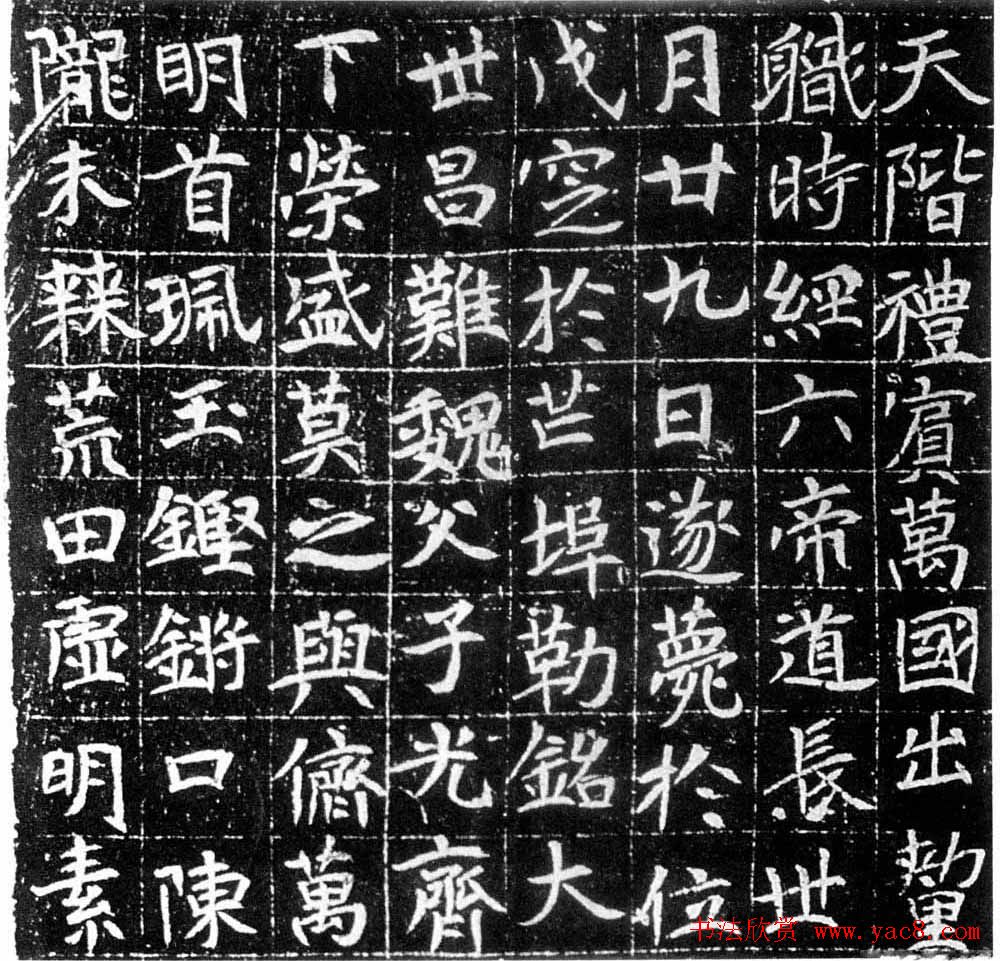 天階禮賓萬國出釐
職時經六帝道長世
月廿九日遂薨於位
戊窆於芒埠勒銘大
世昌難魏父子光齊
下榮盛莫之與儕萬
眀首珮玉鏗鏘口陳
隴未棘荒田虛明素
书法欣赏 www.yac8.com